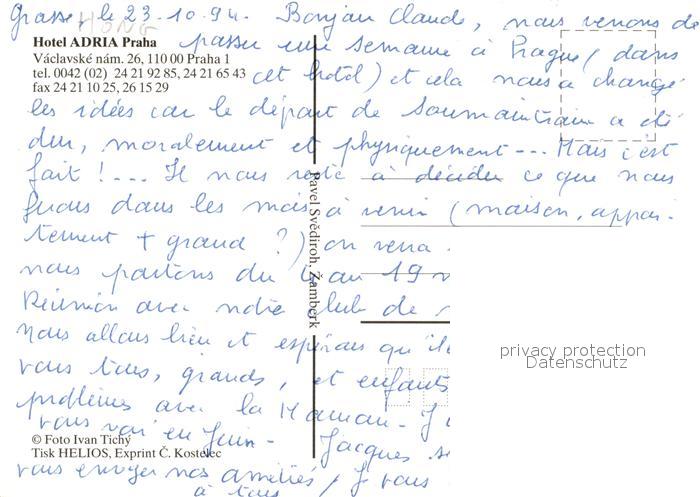 Grasse, le 23.10.94. Bonjour Claude, nous venons de
passer une semaine à Prague (dans
cet hotel) et cela nous a changé
les idées car le départ de Soumaintrain a été
dur, moralement et physiquement --- Mais c'est
fait ! --- Il nous reste à décider ce que nous
ferons dans les mois à venir (maison, appar-
tement + grand ?) on verra.
nous partons du au 19
Réunion avec notre club de
nous allons bien et espérons qu'il
vous tous, grands, et enfants
problèmes avec la Maman - J
vous voir en Juin - Jacques se
vous envoyer nos amitiés / Je vous
à tous
Hotel ADRIA Praha
Václavské nám. 26, 110 00 Praha 1
tel. 0042 (02) 24 21 92 85, 24 21 65 43
fax 24 21 10 25, 26 15 29
Pavel Svědiroh, Žamberk
© Foto Ivan Tichý
Tisk HELIOS, Exprint Č. Kostelec
privacy protection
Datenschutz